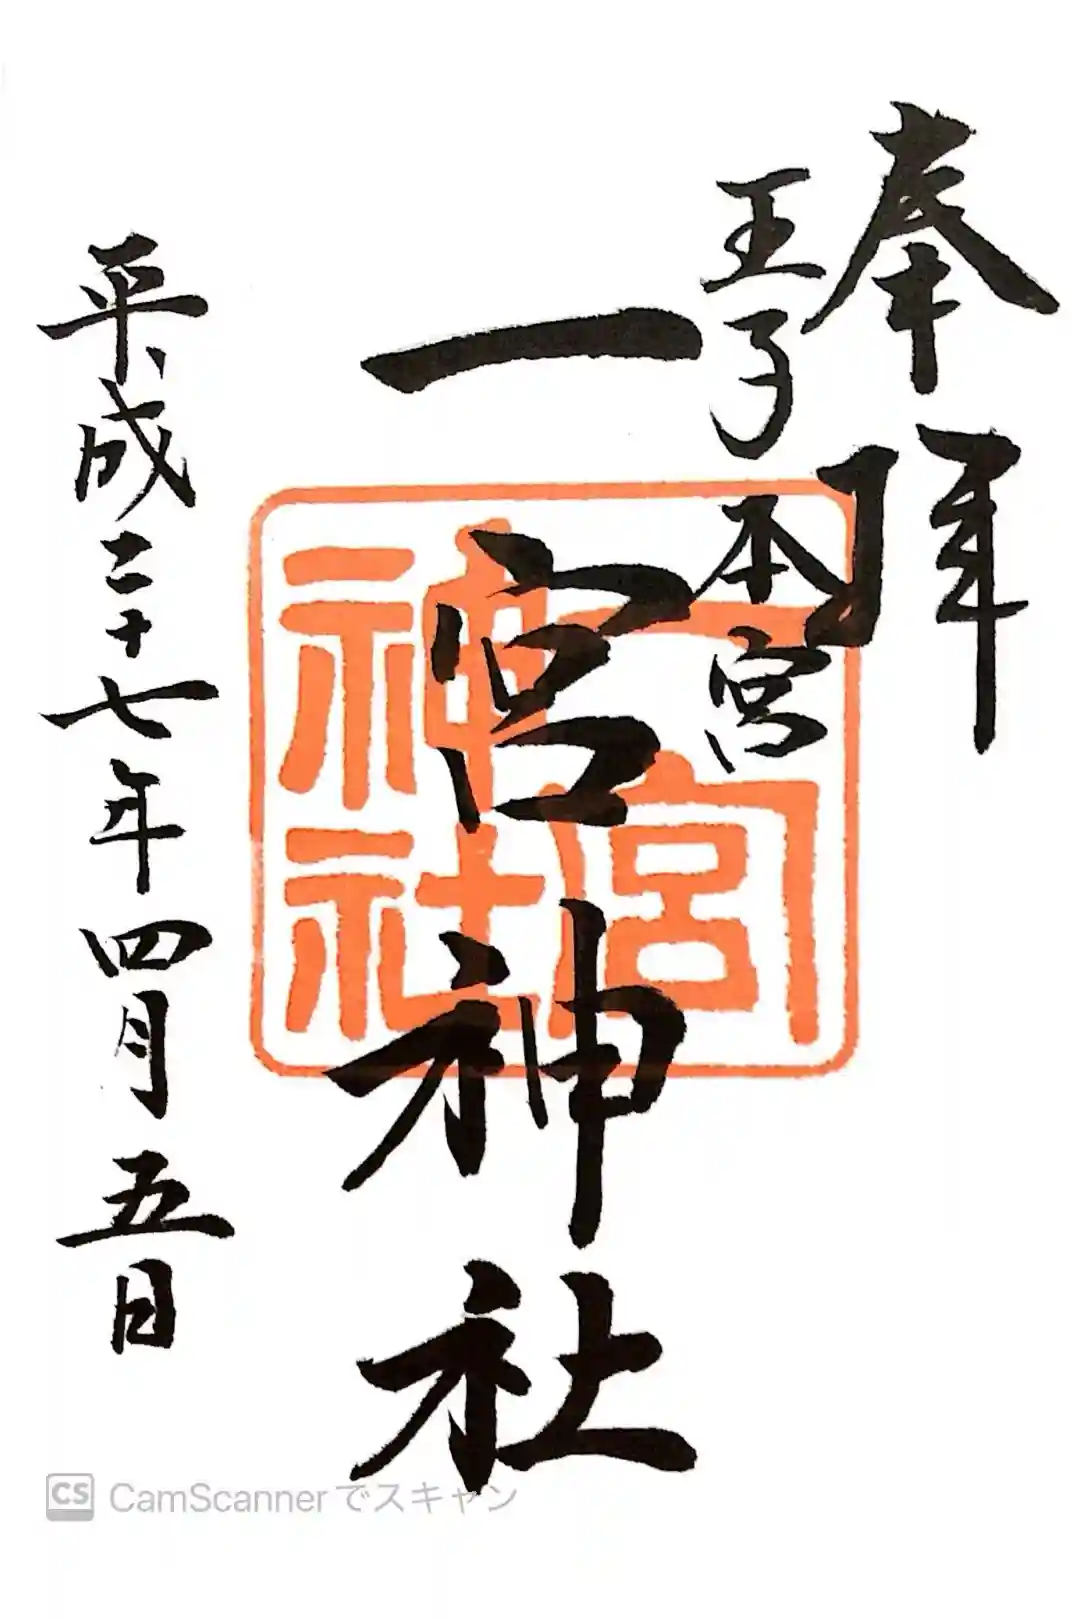 奉拝
王子本宮
一宮神社
一宮神社
平成二十七年四月五日
CS CamScannerでスキャン